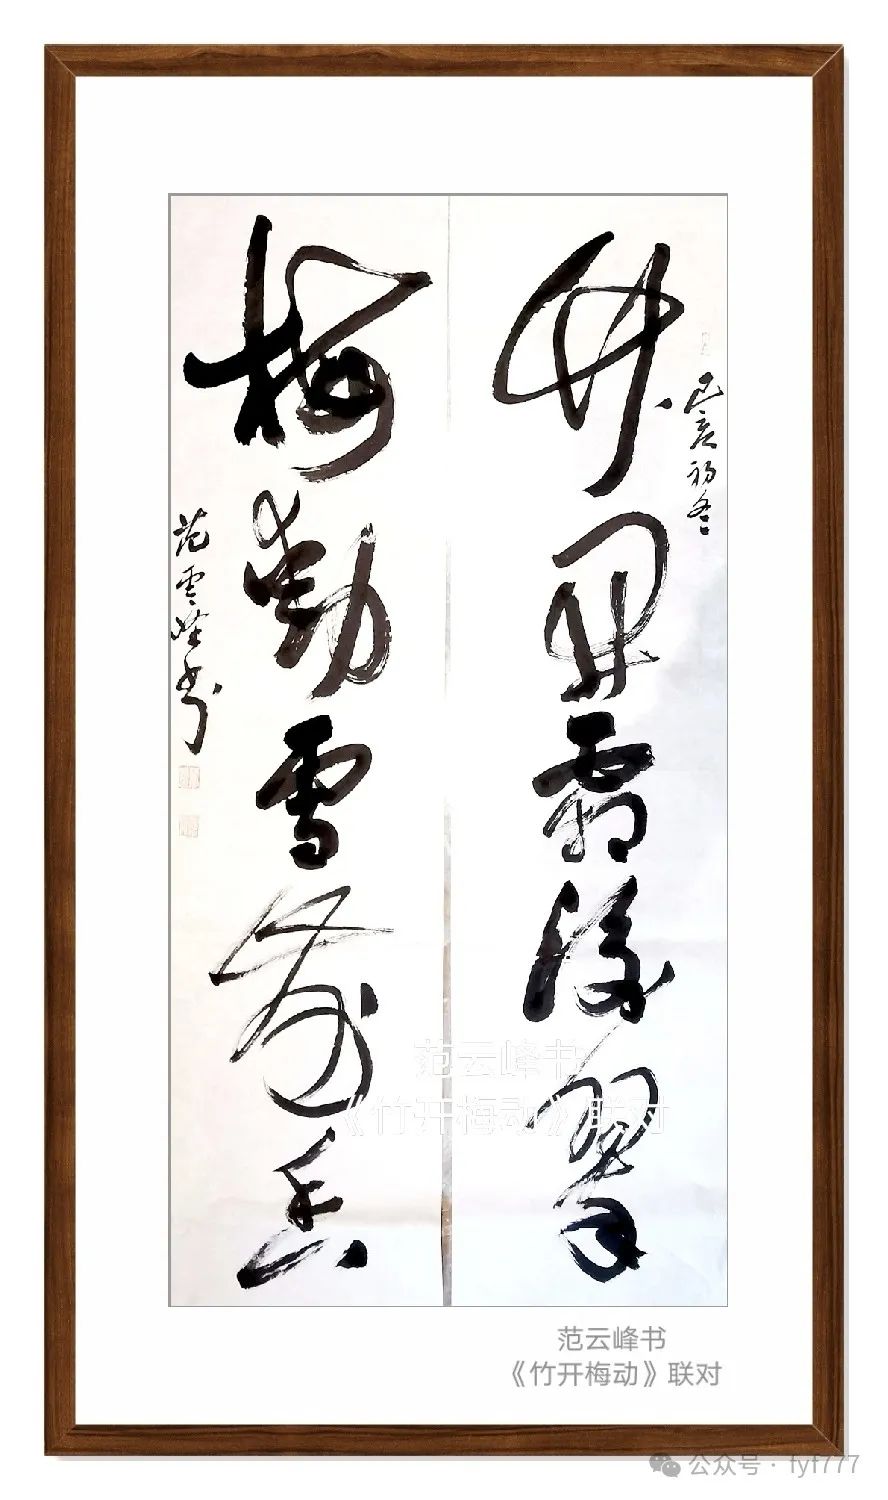 己亥初冬
竹开霜后翠
梅動雪前香
范云峰书
范云峰书
《竹开梅动》联对
范云峰书
《竹开梅动》联对
公众号·fyf777